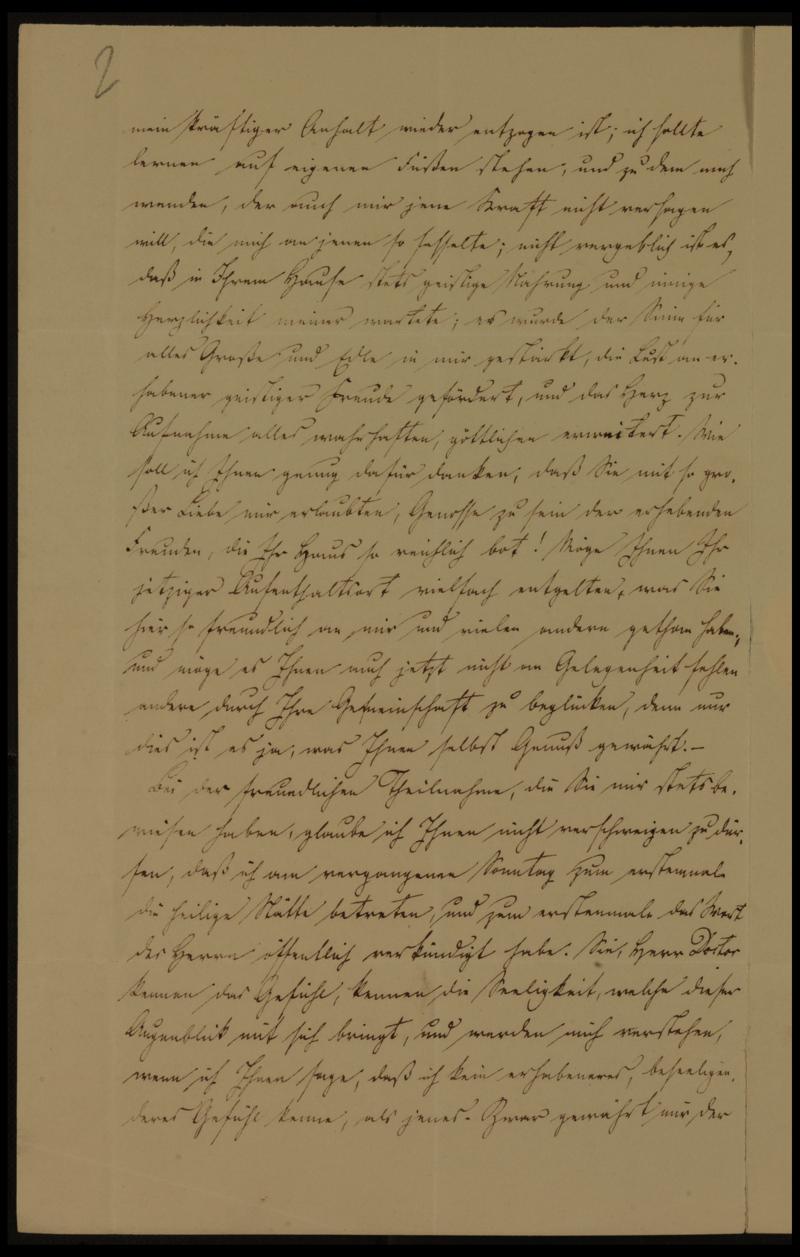 2
mein kräftiger Anhalt wieder entzogen ist; ich sollte
lernen auf eigenen Füßen stehen, und zu dem mich
wenden, der auch mir jene Kraft nicht versagen
will, die mich an jenen so fesselte; nicht vergeblich ist es,
daß in Ihrem Hause stets geistige Nahrung und innige
Herzlichkeit meiner wartete; es wurde der Sinn für
alles Große und Edle in mir gestärkt, die Lust an er-
habener geistiger Freude gefördert, und das Herz zur
Aufnahme alles wahrhaften, göttlichen erweitert. Wie
soll ich Ihnen genug dafür danken, daß Sie mit so gro-
ßer Liebe mir erlaubten, Genosse zu sein der erhebenden
Freuden, die Ihr Haus so reichlich bot! Möge Ihnen Ihr
jetziger Aufenthaltsort vielfach entgelten, was Sie
hier so freundlich an mir und vielen andern gethan haben,
und möge es Ihnen auch jetzt nicht an Gelegenheit fehlen
andere durch Ihre Gemeinschaft zu beglücken, denn nur
dies ist es ja, was Ihnen selbst Genuß gewährt. –
Bei der freundlichen Theilnahme, die Sie mir stets be-
wiesen haben, glaube ich Ihnen nicht verschweigen zu dür-
fen, daß ich am vergangenen Sonntag zum erstenmale
die heilige Stätte betreten, und zum erstenmale das Wort
des Herrn öffentlich verkündigt habe. Sie, Herr Doctor
kennen das Gefühl, kennen die Seeligkeit, welche dieser
Augenblick mit sich bringt, und werden mich verstehen,
wenn ich Ihnen sage, daß ich kein erhabeneres, beseeligen-
deres Gefühl kenne, als jenes. Zwar gewährt mir der